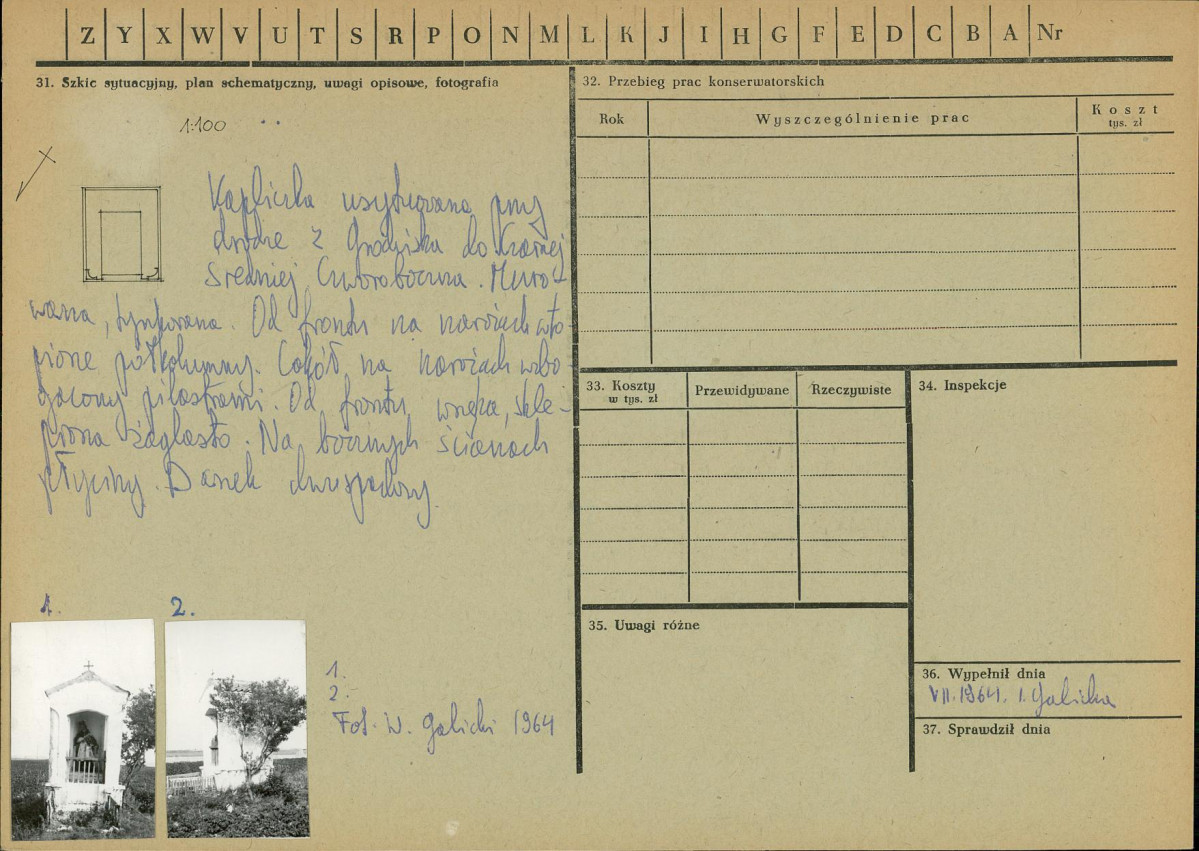 Z Y X W V U T S R P O N M L K J I H G F E D C B A Nr
31. Szkic sytuacyjny, plan schematyczny, uwagi opisowe, fotografia
1:100
Kapliczka usytuowana przy
drodze z Grodziska do Czarnej
Średniej Czworoboczna. Muro-
wana, tynkowana. Od frontu na narożach wto-
pione półkolumny. Cokół na narożach wzbo-
gacony pilastrami. Od frontu wnęka, skle-
piona żaglasto. Na bocznych ścianach
płyciny. Daszek dwuspadowy.
1. 2.
1.
2.
Fot. W. Galicki 1964
32. Przebieg prac konserwatorskich
Rok Wyszczególnienie prac Koszt
tys. zł
33. Koszty
w tys. zł
Przewidywane Rzeczywiste
34. Inspekcje
35. Uwagi różne
36. Wypełnił dnia
VII.1964. I. Galicka
37. Sprawdził dnia